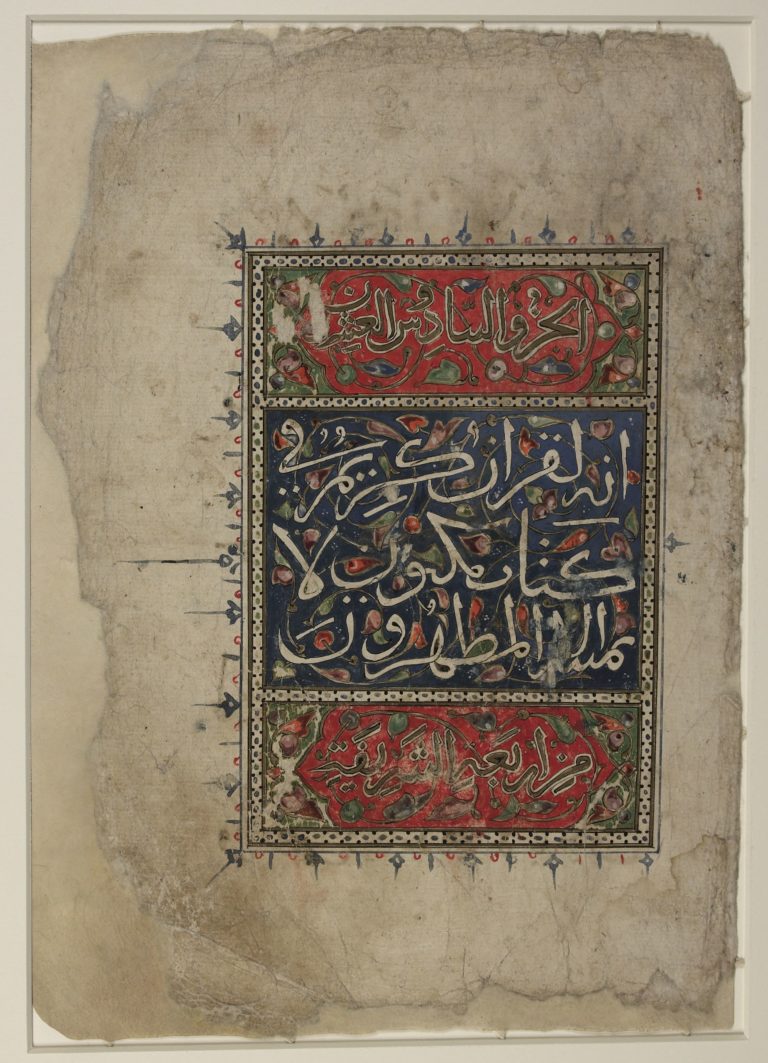 الجزو السادس والعشرين
انه لقران كريم في
كتاب مكنون لا
يمسه الا المطهرون
من اربعة الشريفة